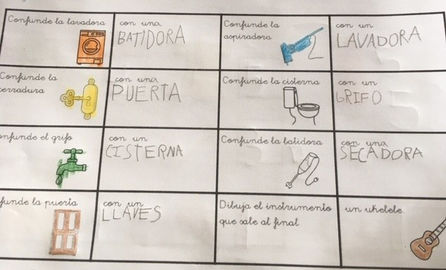 Confunde la lavadora
con una
BATIDORA
Confunde la
aspiradora
con un
LAVADORA
Confunde la
cerradura
con una
PUERTA
Confunde la cisterna
con un
GRIFO
Confunde el grifo
con un
CISTERNA
Confunde la batidora
con una
SECADORA
funde la puerta
con un
LLAVES
Dibuja el instrumento
que sale al final
un ukelele